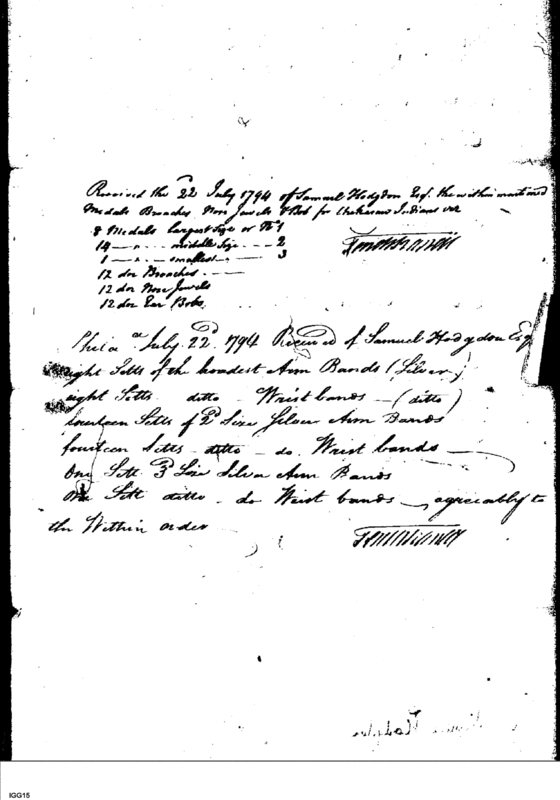 Received the 22d July 1794 of Samuel Hodgdon Esqr. the within mentioned
Medals Broaches Nose Jewels & Bobs for Chickasaw Indians viz
8 Medals largest size or No 1
14 — " — middle size — 2
1 — " — smallest — 3
12 doz Broaches
12 doz Nose Jewels
12 doz Ear Bobs
Phila July 22d. 1794 Received of Samuel Hodgdon Esq
eight Setts of the broadest Arm Bands (Silver)
eight Setts ditto Wrist bands — (ditto)
fourteen Setts of 2d Size Silver Arm Bands
fourteen Setts ditto do. Wrist bands
One Sett 3d Size Silver Arm Bands
One Sett ditto do Wrist bands — agreeably to
the Within order
Hodgdon
IGG15